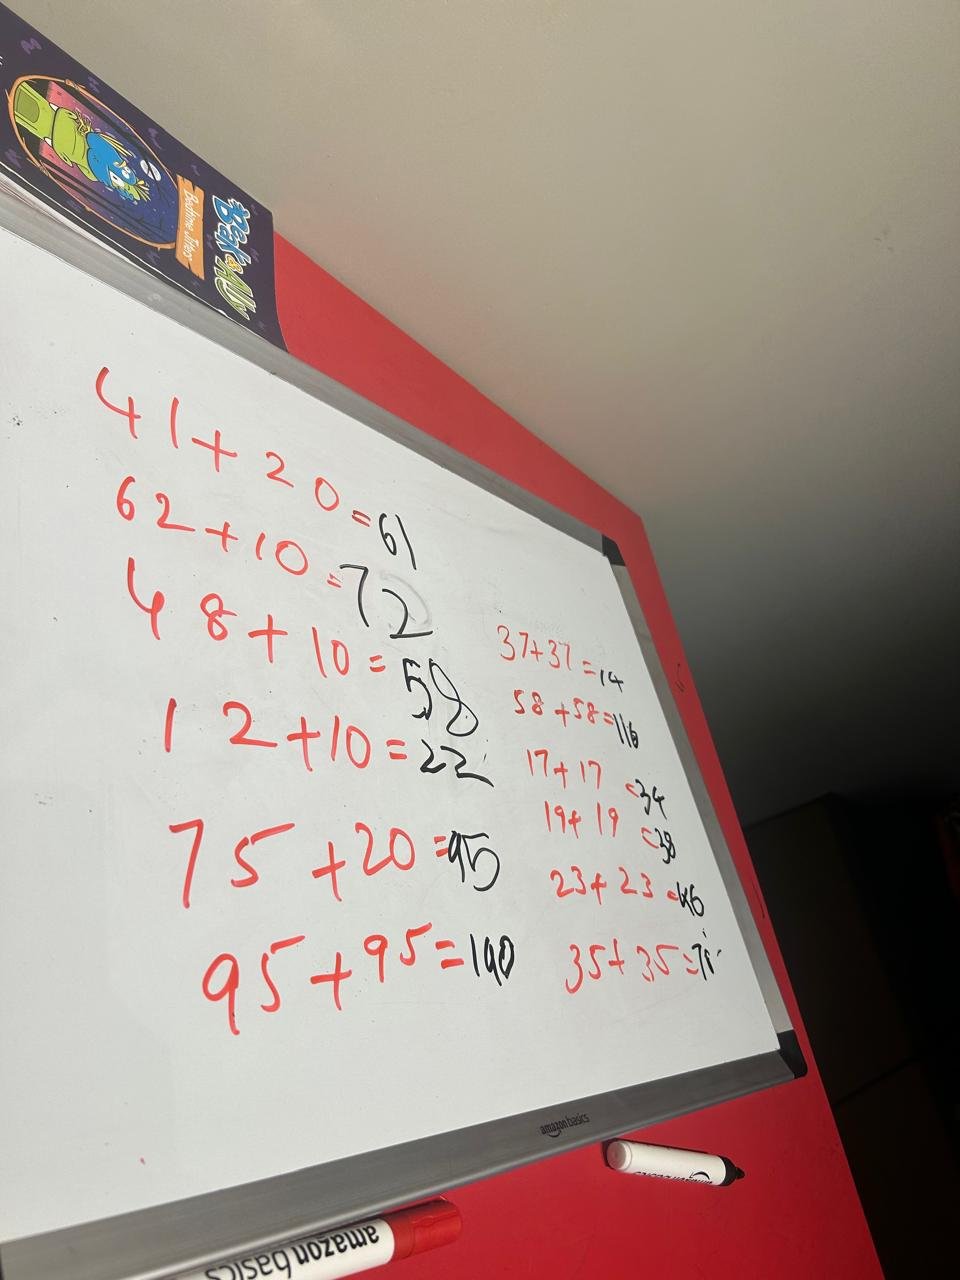 Bak & Ally
Bedtime Jitters
41+20=61
62+10=72
48+10=58
12+10=22
75+20=95
95+95=190
37+37=14
58+58=116
17+17=34
19+19=38
23+23=46
35+35=70
amazon basics
amazon basics